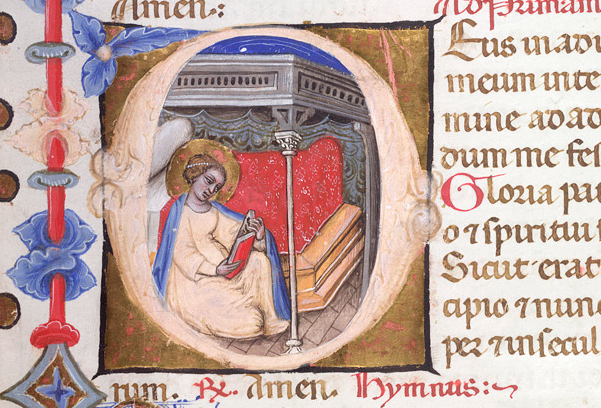 Amen:
Ad Primam
Eus in adiu
meum inte
mine ad ad
dum me fes
Gloria pa
o ⁊ spiritui s
Sicut erat
cipio ⁊ nunc
per ⁊ in secul
rum. ℟. Amen. Hymnus: